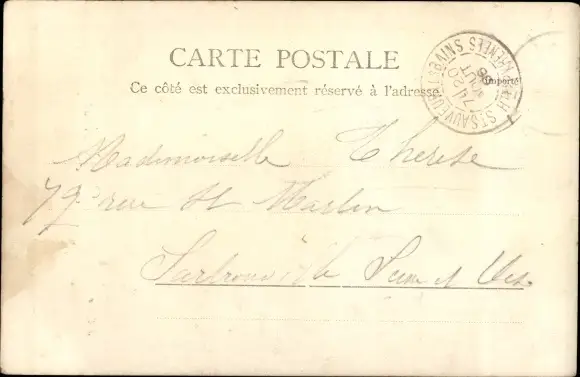 CARTE POSTALE
Ce côté est exclusivement réservé à l'adresse
Importé
ST SAUVEUR
20
AOUT
Mademoiselle Therese
79 rue St Martin
Sartrouville Seine et Oise